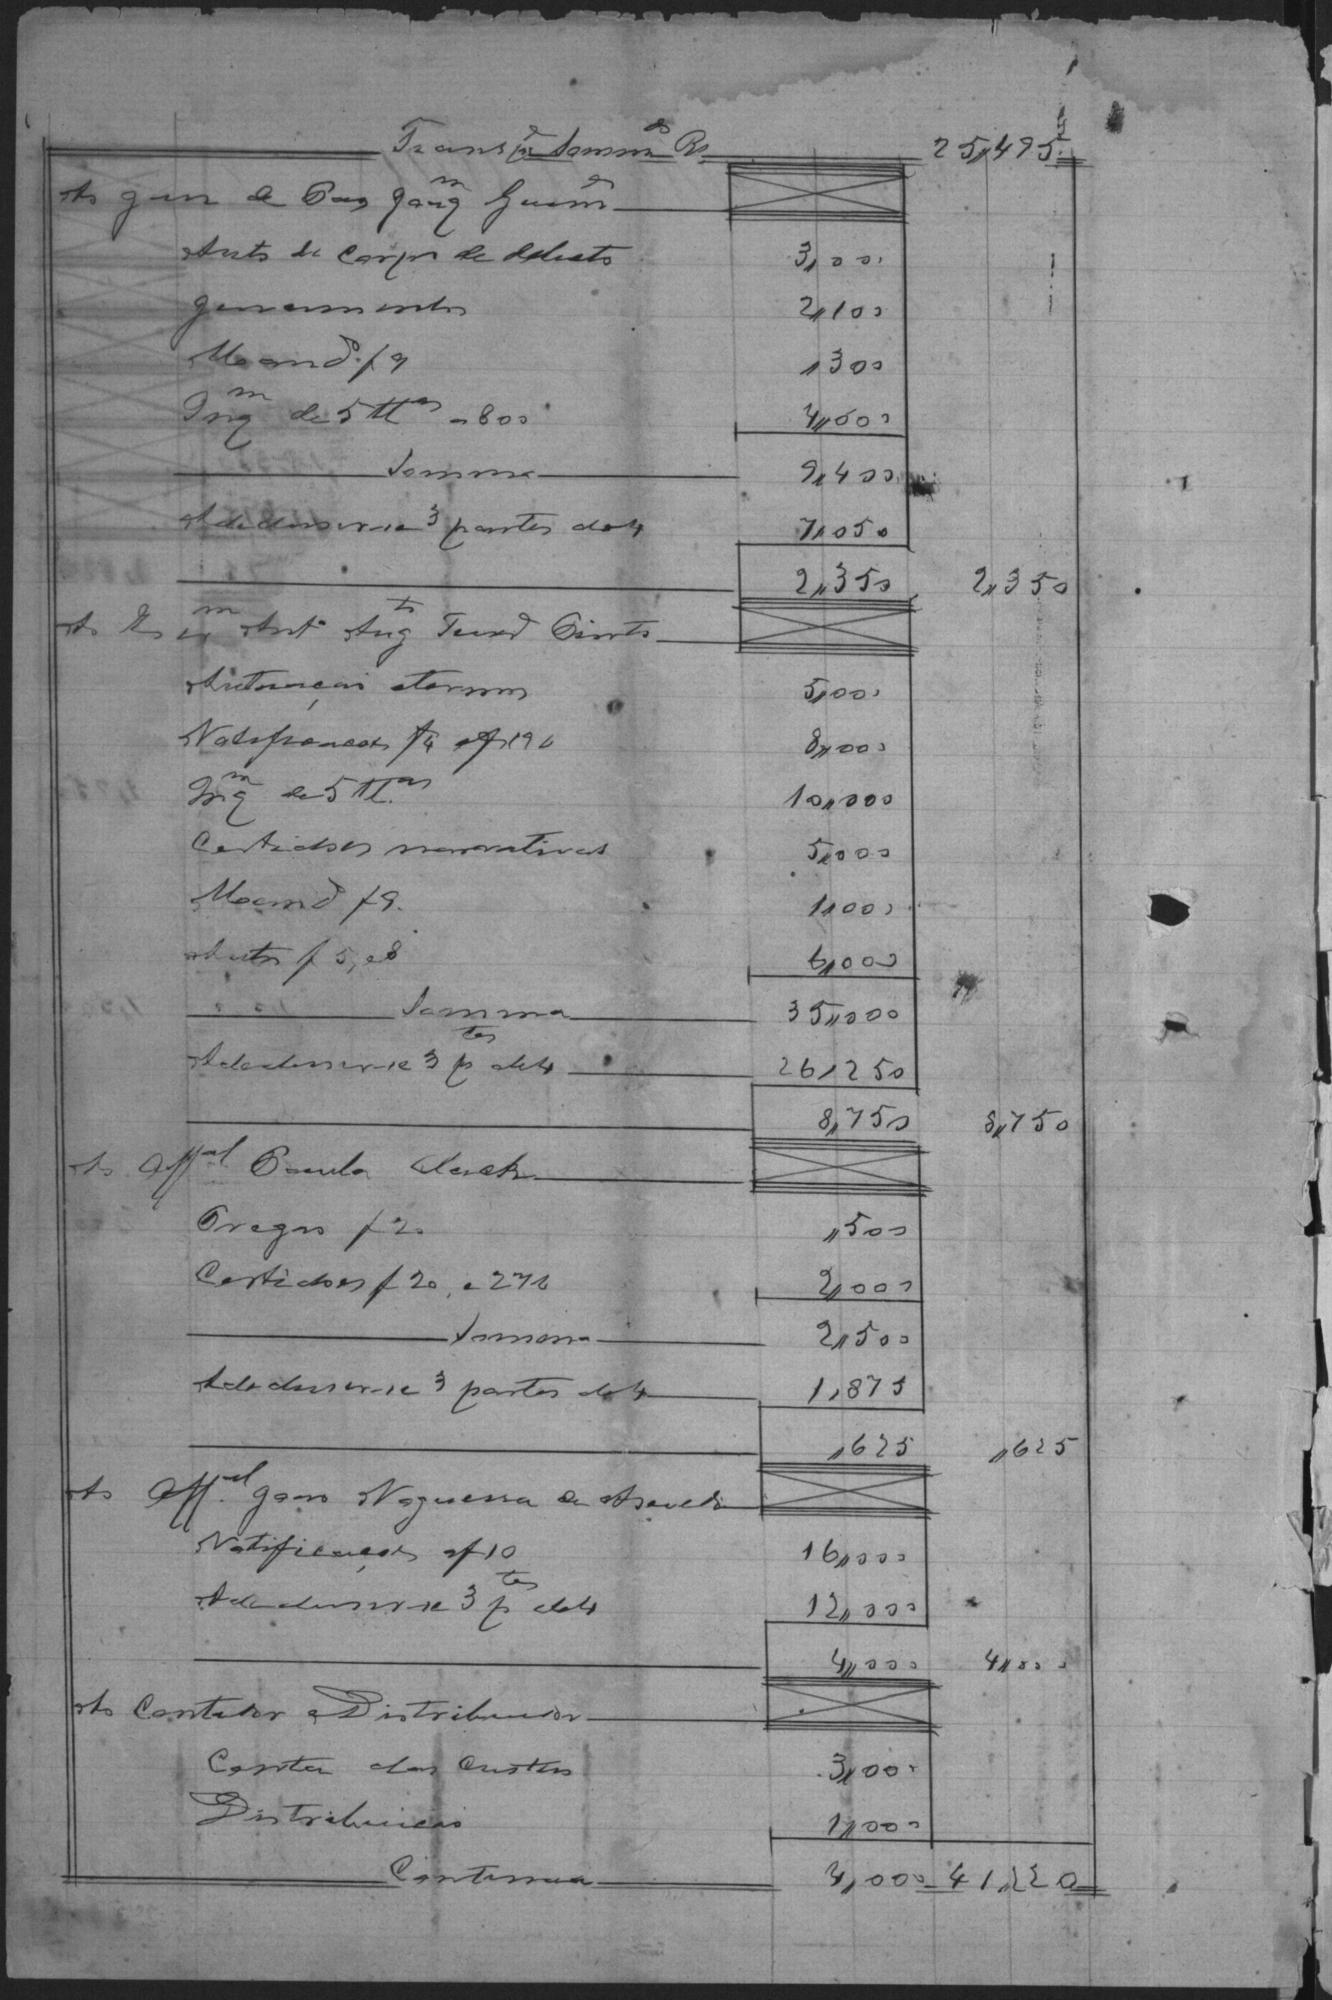 Transpe Somm do Rs 25,495
Ao Juiz de Paz Joaqm Guimes
Auto de Corpo de delicto 3,000
Juramentos 2,100
Mando f 9 ,300
Inqm de 5 ttas a 800 4,000
Somma 9,400
Adedusir-se 3 partes de 4 7,050
2,350 2,350
Ao Esm Anto Augto Pinto
Autuação e termos 5,000
Notificações f 4 e f 19 v 8,000
Inqm de 5 ttas 10,000
Certidões narrativas 5,000
Mando f 9. 1,000
Autos f 5, e 8 6,000
Somma 35,000
Adedusir-se 3 ptes de 4 26,250
8,750 8,750
Ao Offal Paula
Pregão f 20 ,500
Certidões f 20, e 27 v 2,000
Somma 2,500
Adedusir-se 3 partes de 4 1,875
,625 ,625
Ao Offal João Nogueira de Asevedo
Notificações a f 10 16,000
Adedusir-se 3 ptes de 4 12,000
4,000 4,000
Ao Contador e Distribuidor
Conta das Custas 3,000
Distribuicão 1,000
Continua 4,000 41,220